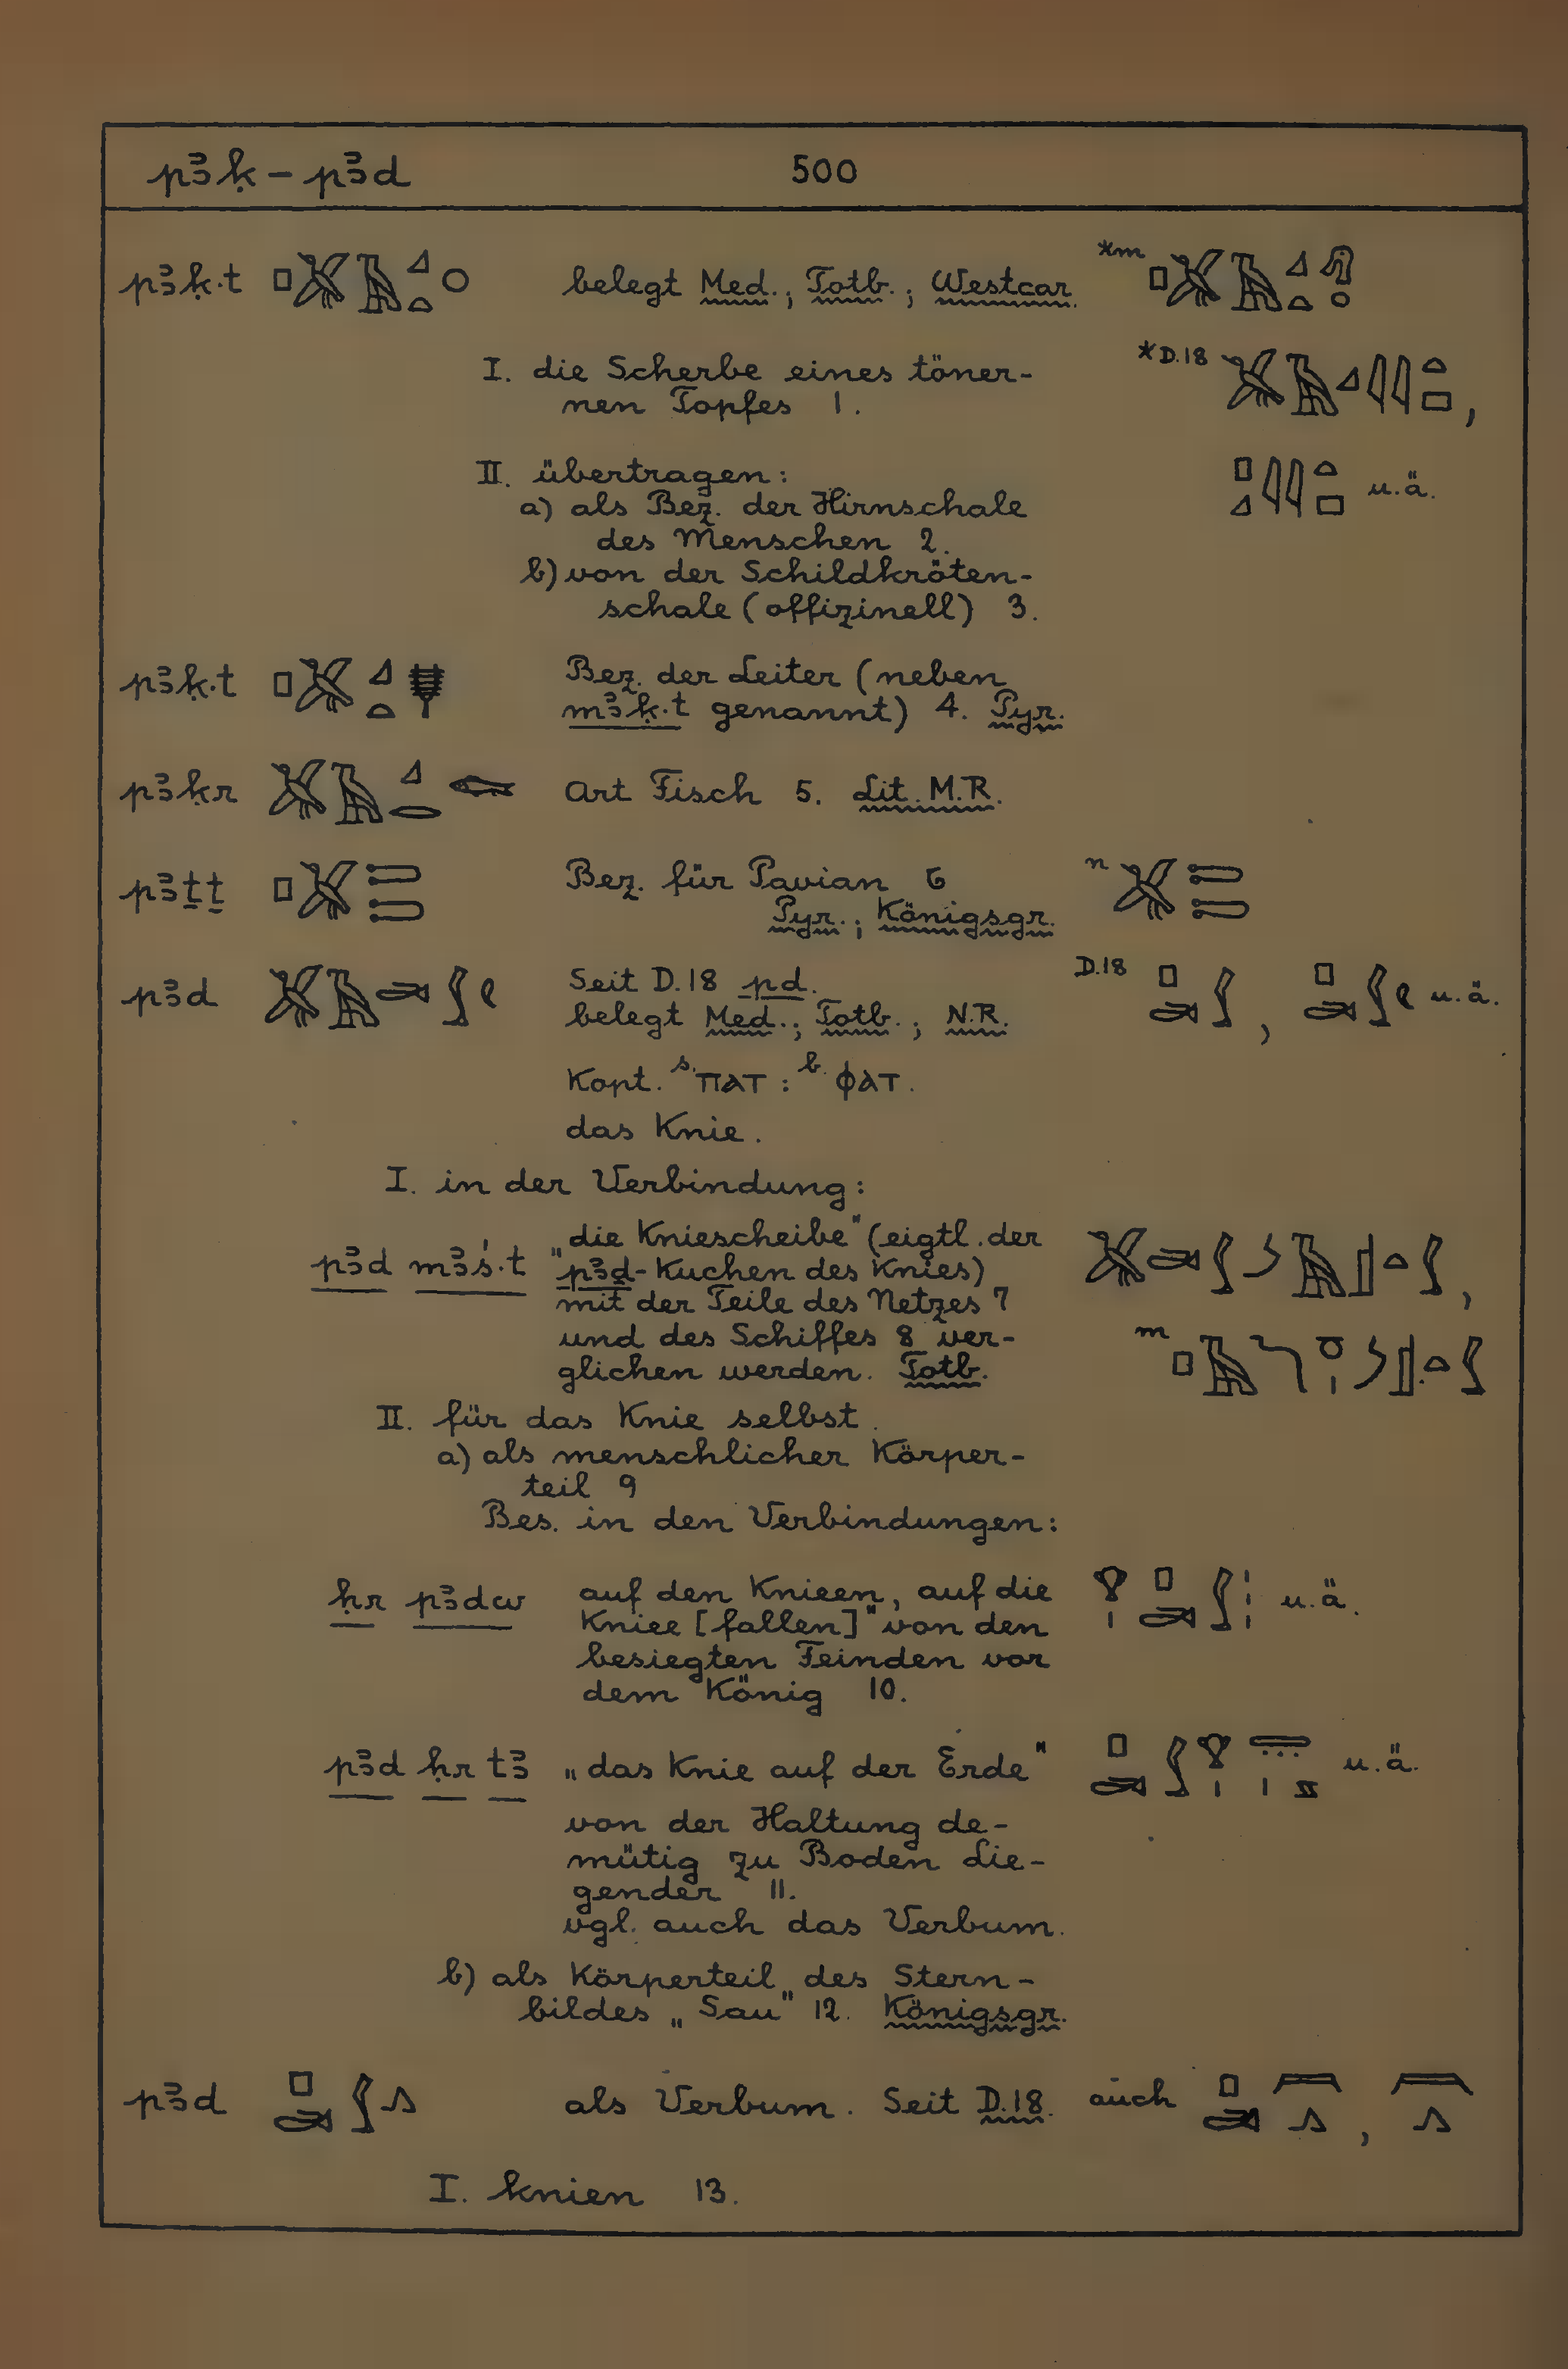 pꜣḳ – pꜣd 500
pꜣḳ·t belegt Med.; Totb.; Westcar. *m
I. die Scherbe eines töner- *D.18
nen Topfes 1. ,
II. übertragen: u.ä.
a) als Bez. der Hirnschale
des Menschen 2.
b) von der Schildkröten-
schale (offizinell) 3.
pꜣḳ·t Bez. der Leiter (neben
mꜣḳ·t genannt) 4. Pyr.
pꜣḳr Art Fisch 5. Lit. M.R.
pꜣṯṯ Bez. für Pavian 6 n
Pyr.; Königsgr.
pꜣd Seit D.18 pd. D.18 , u.ä.
belegt Med.; Totb.; N.R.
Kopt. s. ⲡⲁⲧ : b. ⲫⲁⲧ.
das Knie.
I. in der Verbindung:
pꜣd mꜣś·t „die Kniescheibe" (eigtl. der
pꜣḏ-Kuchen des Knies) ,
mit der Teile des Netzes 7
und des Schiffes 8 ver- m
glichen werden. Totb.
II. für das Knie selbst.
a) als menschlicher Körper-
teil 9
Bes. in den Verbindungen:
ḥr pꜣdw auf den Knieen, auf die u.ä.
Kniee [fallen]" von den
besiegten Feinden vor
dem König 10.
pꜣd ḥr tꜣ „das Knie auf der Erde" u.ä.
von der Haltung de-
mütig zu Boden Lie-
gender 11.
vgl. auch das Verbum.
b) als Körperteil des Stern-
bildes „Sau" 12. Königsgr.
pꜣd als Verbum. Seit D.18. auch ,
I. knien 13.